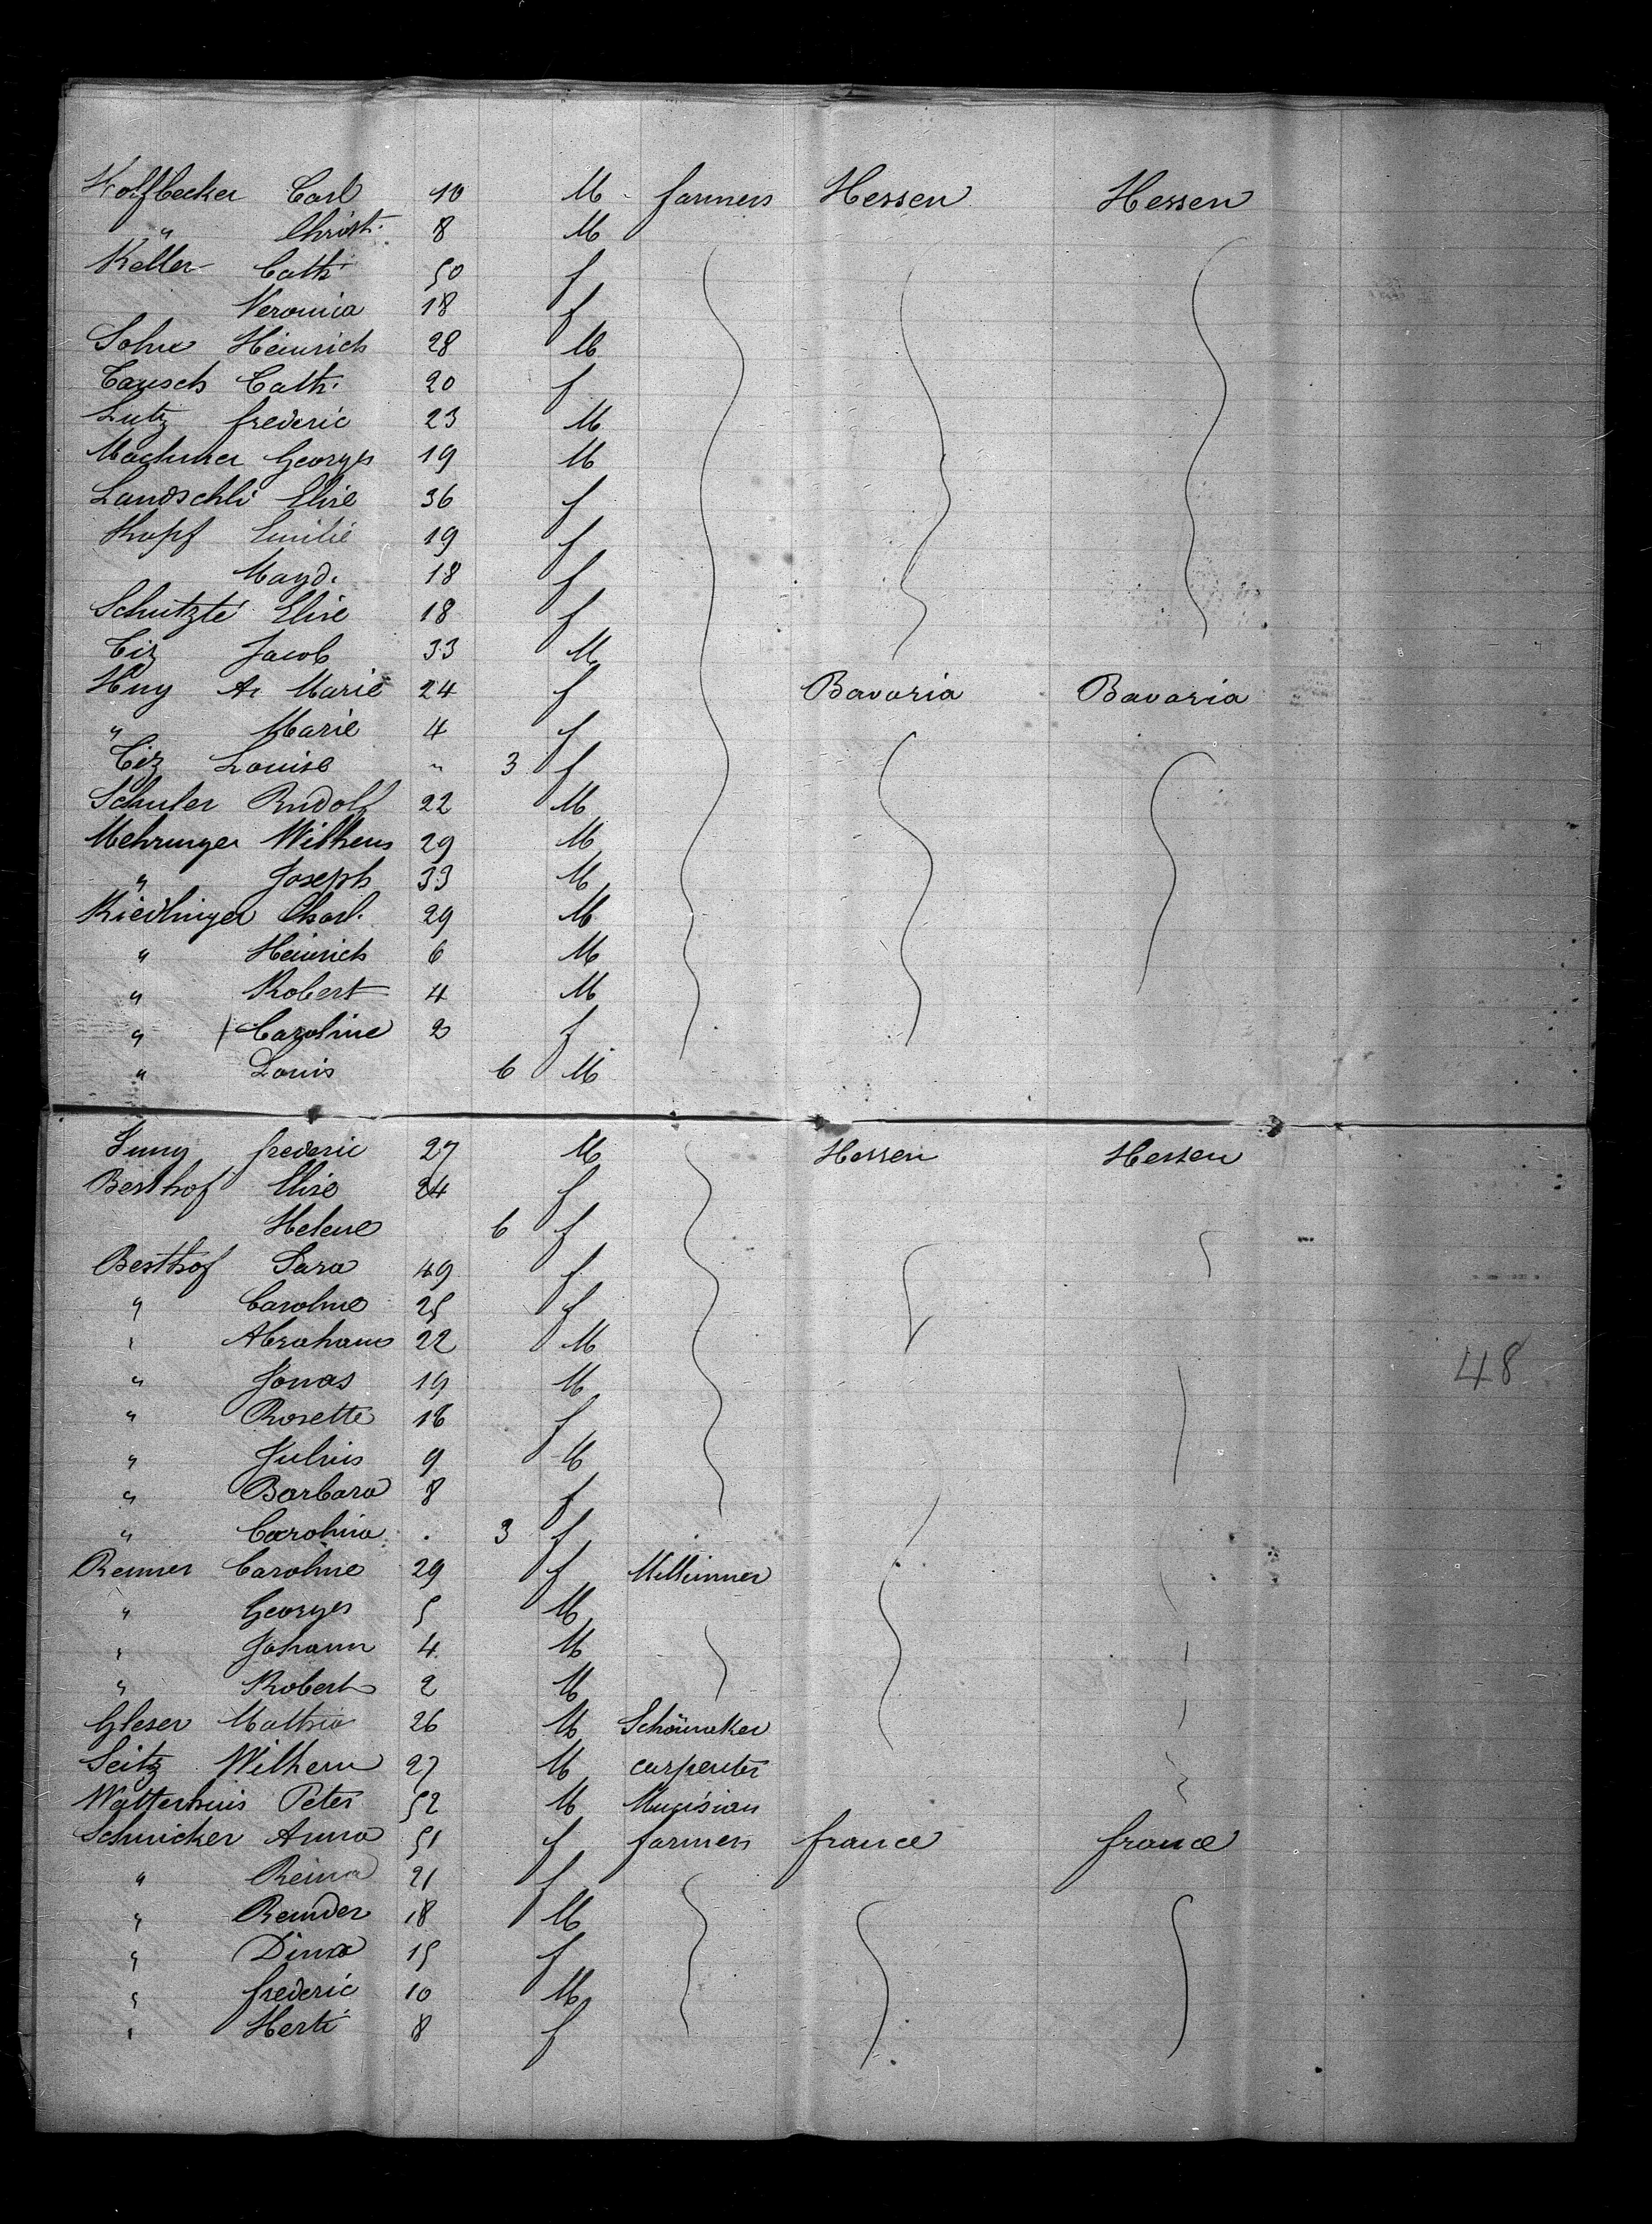 Wolfbecker Carl 10 M farmers Hessen Hessen
" Christ. 8 M
Keller Cath. 50 f
Veronica 18 f
Sohn Heinrich 28 M
Tausch Cath. 20 f
Lutz frederic 23 M
Machmer Georges 19 M
Landschli Elise 36 f
Kopf Emilie 19 f
Magd. 18 f
Schutzte Elise 18 f
Tiz Jacob 33 M
Huy A. Marie 24 f Bavaria Bavaria
" Marie 4 f
Tiz Louise " 3 f
Schuler Rudolf 22 M
Mehrunger Wilhem 29 M
" Joseph 33 M
Riedlinger Charl. 29 M
" Heinrich 6 M
" Robert 4 M
" Caroline 2 f
" Louis 6 M
Jung frederic 27 M Hessen Hessen
Berthof Elise 24 f
Helene 6 f
Berthof Sara 49 f
" Caroline 25 f
" Abraham 22 M
" Jonas 19 M
" Rosette 16 f
" Julius 9 M
" Barbara 8 f
" Carolina . 3 f
Renner Caroline 29 f Millinner
" Georges 5 M
" Johann 4 M
" Robert 2 M
Gleser Mathia 26 M Schömaker
Seitz Wilhem 27 M carpenter
Watterhuis Peter 52 M Mucisian
Schmicker Anna 51 f farmers france france
" Reina 21 f
" Reinder 18 M
" Dina 15 f
" frederic 10 M
" Herti 8 f
48